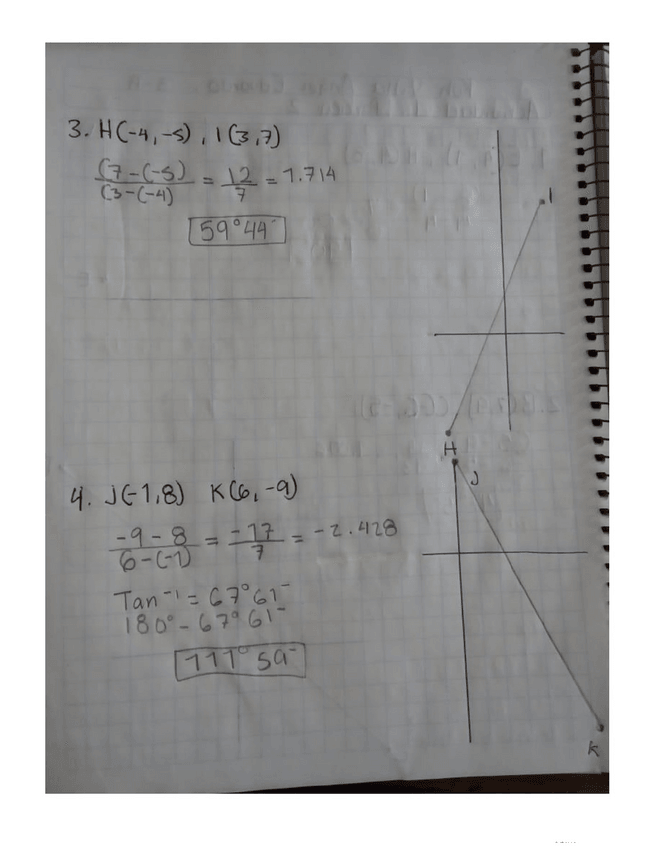 3. H(-4,-5), I(3,7)
(7-(-5) / (3-(-4) = 12/7 = 1.714
59°44'
I
H
4. J(-1,8) K(6,-9)
J
-9-8 / 6-(-1) = -17/7 = -2.428
Tan⁻¹ = 67°61'
180° - 67°61'
111°59'
K